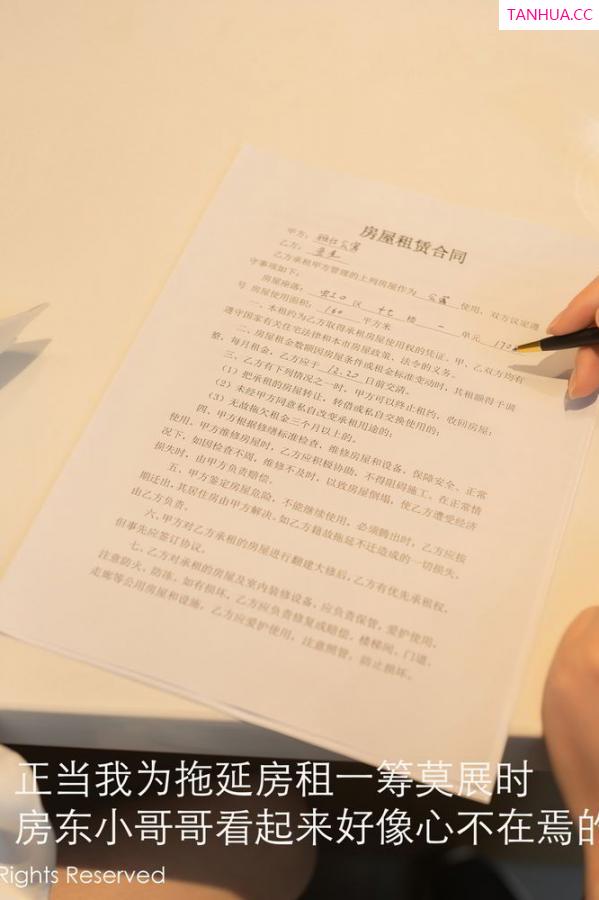 TANHUA.CC
房屋租赁合同
甲方：
乙方：
乙方承租甲方管理的上列房屋作为 公寓 使用，双方议定遵
守事项如下：
房屋座落： 区 楼 单元 170
号 房屋使用面积： 160 平方米
一、本租约为乙方取得承租房屋使用权的凭证。甲、乙双方均有
遵守国家有关住宅法律和本市房屋政策、法令的义务。
二、房屋租金数额因房屋条件或租金标准变动时，其租额得千调
整，每月租金，乙方应于 12.20 日前交清。
三、乙方有下列情况之一时，甲方可以终止租约，收回房屋：
（1）把承租的房屋转让，转借或私自交换使用的；
（2）未经甲方同意私自改变承租用途的；
（3）无故拖欠租金三个月以上的。
四、甲方根据修缮标准检查、维修房屋和设备，保障安全、正常
使用。甲方维修房屋时，乙方应积极协助，不得阻碍施工。在正常情
况下，如因检查不周，维修不及时，以致房屋倒塌，使乙方遭受经济
损失时，由甲方负责赔偿。
五、甲方鉴定房屋危险，不能继续使用，必须腾出时，乙方应按
期迁出，其居住房由甲方解决。如乙方籍故拖延不迁造成的一切损失，
由乙方负责。
六、甲方对乙方承租的房屋进行翻建大修后，乙方有优先承租权，
但事先应签订协议。
七、乙方对承租的房屋及室内装修设备，应负责保管，爱护使用，
注意防火，防冻，如有损坏，乙方应负责修复或赔偿，楼梯间、门道、
走廊等公用房屋和设施，乙方应爱护使用，注意照管，防止损坏。
正当我为拖延房租一筹莫展时
房东小哥哥看起来好像心不在焉的
Rights Reserved